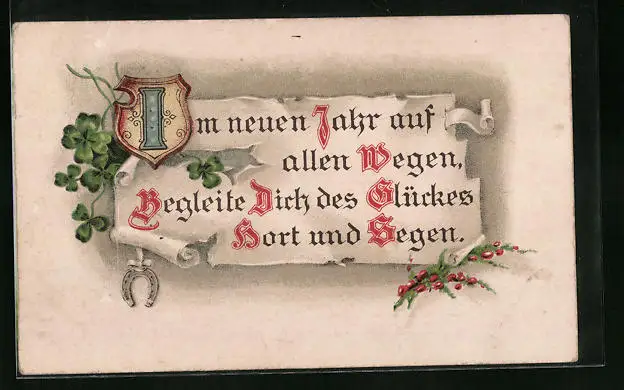 Im neuen Jahr auf
allen Wegen,
Begleite Dich des Glückes
Hort und Segen.